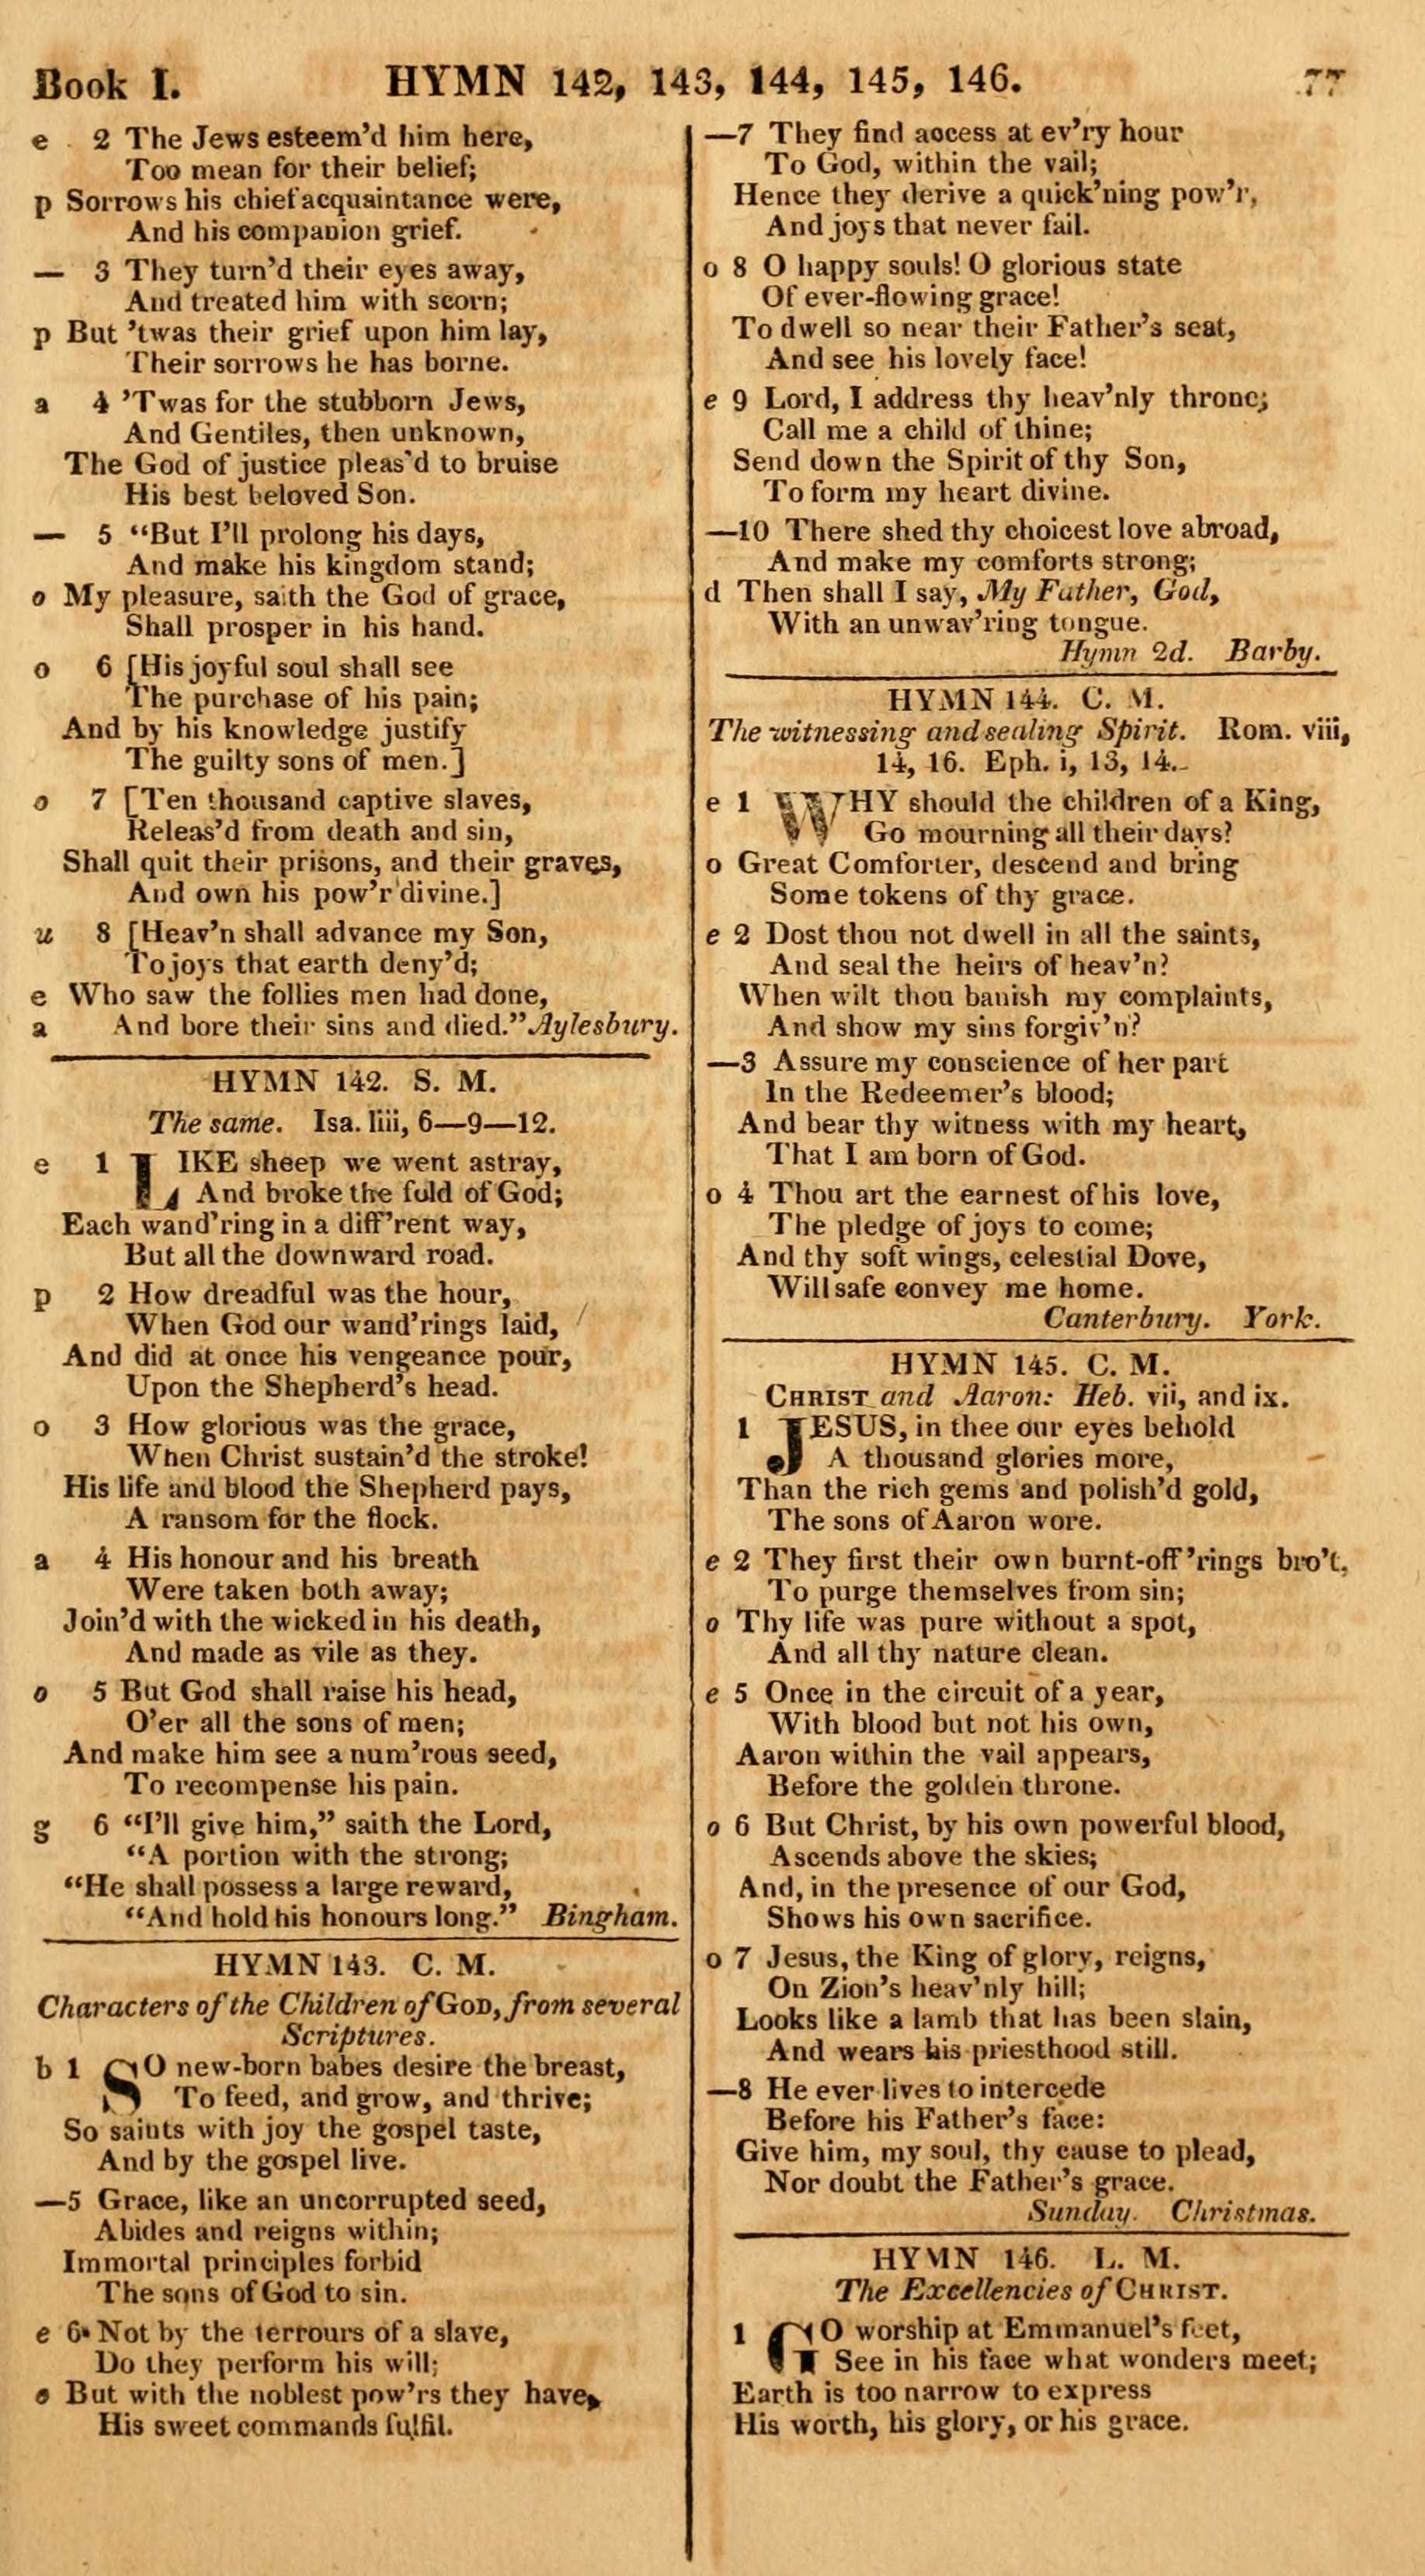 Book I. HYMN 142, 143, 144, 145, 146. 77
e 2 The Jews esteem'd him here,
Too mean for their belief;
p Sorrows his chief acquaintance were,
And his companion grief.
— 3 They turn'd their eyes away,
And treated him with scorn;
p But 'twas their grief upon him lay,
Their sorrows he has borne.
a 4 'Twas for the stubborn Jews,
And Gentiles, then unknown,
The God of justice pleas'd to bruise
His best beloved Son.
— 5 "But I'll prolong his days,
And make his kingdom stand;
o My pleasure, saith the God of grace,
Shall prosper in his hand.
o 6 [His joyful soul shall see
The purchase of his pain;
And by his knowledge justify
The guilty sons of men.]
o 7 [Ten thousand captive slaves,
Releas'd from death and sin,
Shall quit their prisons, and their graves,
And own his pow'r divine.]
u 8 [Heav'n shall advance my Son,
To joys that earth deny'd;
e Who saw the follies men had done,
a And bore their sins and died." Aylesbury.
HYMN 142. S. M.
The same. Isa. liii, 6—9—12.
e 1 LIKE sheep we went astray,
And broke the fold of God;
Each wand'ring in a diff'rent way,
But all the downward road.
p 2 How dreadful was the hour,
When God our wand'rings laid,
And did at once his vengeance pour,
Upon the Shepherd's head.
o 3 How glorious was the grace,
When Christ sustain'd the stroke!
His life and blood the Shepherd pays,
A ransom for the flock.
a 4 His honour and his breath
Were taken both away;
Join'd with the wicked in his death,
And made as vile as they.
o 5 But God shall raise his head,
O'er all the sons of men;
And make him see a num'rous seed,
To recompense his pain.
g 6 "I'll give him," saith the Lord,
"A portion with the strong;
"He shall possess a large reward,
"And hold his honours long." Bingham.
HYMN 143. C. M.
Characters of the Children of GOD, from several
Scriptures.
b 1 SO new-born babes desire the breast,
To feed, and grow, and thrive;
So saints with joy the gospel taste,
And by the gospel live.
—5 Grace, like an uncorrupted seed,
Abides and reigns within;
Immortal principles forbid
The sons of God to sin.
e 6 Not by the terrours of a slave,
Do they perform his will;
o But with the noblest pow'rs they have,
His sweet commands fulfil.
—7 They find access at ev'ry hour
To God, within the vail;
Hence they derive a quick'ning pow'r,
And joys that never fail.
o 8 O happy souls! O glorious state
Of ever-flowing grace!
To dwell so near their Father's seat,
And see his lovely face!
e 9 Lord, I address thy heav'nly throne;
Call me a child of thine;
Send down the Spirit of thy Son,
To form my heart divine.
—10 There shed thy choicest love abroad,
And make my comforts strong;
d Then shall I say, My Father, God,
With an unwav'ring tongue.
Hymn 2d. Barby.
HYMN 144. C. M.
The witnessing and sealing Spirit. Rom. viii,
14, 16. Eph. i, 13, 14.
e 1 WHY should the children of a King,
Go mourning all their days?
o Great Comforter, descend and bring
Some tokens of thy grace.
e 2 Dost thou not dwell in all the saints,
And seal the heirs of heav'n?
When wilt thou banish my complaints,
And show my sins forgiv'n?
—3 Assure my conscience of her part
In the Redeemer's blood;
And bear thy witness with my heart,
That I am born of God.
o 4 Thou art the earnest of his love,
The pledge of joys to come;
And thy soft wings, celestial Dove,
Will safe convey me home.
Canterbury. York.
HYMN 145. C. M.
CHRIST and Aaron: Heb. vii, and ix.
1 JESUS, in thee our eyes behold
A thousand glories more,
Than the rich gems and polish'd gold,
The sons of Aaron wore.
e 2 They first their own burnt-off'rings bro't,
To purge themselves from sin;
o Thy life was pure without a spot,
And all thy nature clean.
e 5 Once in the circuit of a year,
With blood but not his own,
Aaron within the vail appears,
Before the golden throne.
o 6 But Christ, by his own powerful blood,
Ascends above the skies;
And, in the presence of our God,
Shows his own sacrifice.
o 7 Jesus, the King of glory, reigns,
On Zion's heav'nly hill;
Looks like a lamb that has been slain,
And wears his priesthood still.
—8 He ever lives to intercede
Before his Father's face:
Give him, my soul, thy cause to plead,
Nor doubt the Father's grace.
Sunday. Christmas.
HYMN 146. L. M.
The Excellencies of CHRIST.
1 GO worship at Emmanuel's feet,
See in his face what wonders meet;
Earth is too narrow to express
His worth, his glory, or his grace.